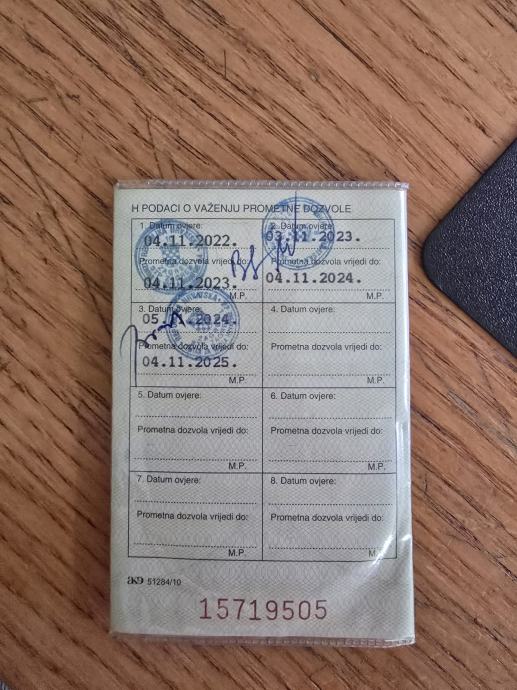 H PODACI O VAŽENJU PROMETNE DOZVOLE
1. Datum ovjere:
04.11.2022.
Prometna dozvola vrijedi do:
04.11.2023.
M.P.
2. Datum ovjere:
03.11.2023.
Prometna dozvola vrijedi do:
04.11.2024.
M.P.
3. Datum ovjere:
05. .2024.
Prometna dozvola vrijedi do:
04.11.2025.
M.P.
4. Datum ovjere:
Prometna dozvola vrijedi do:
M.P.
5. Datum ovjere:
Prometna dozvola vrijedi do:
M.P.
6. Datum ovjere:
Prometna dozvola vrijedi do:
M.P.
7. Datum ovjere:
Prometna dozvola vrijedi do:
M.P.
8. Datum ovjere:
Prometna dozvola vrijedi do:
M.P.
AKD 51284/10
15719505